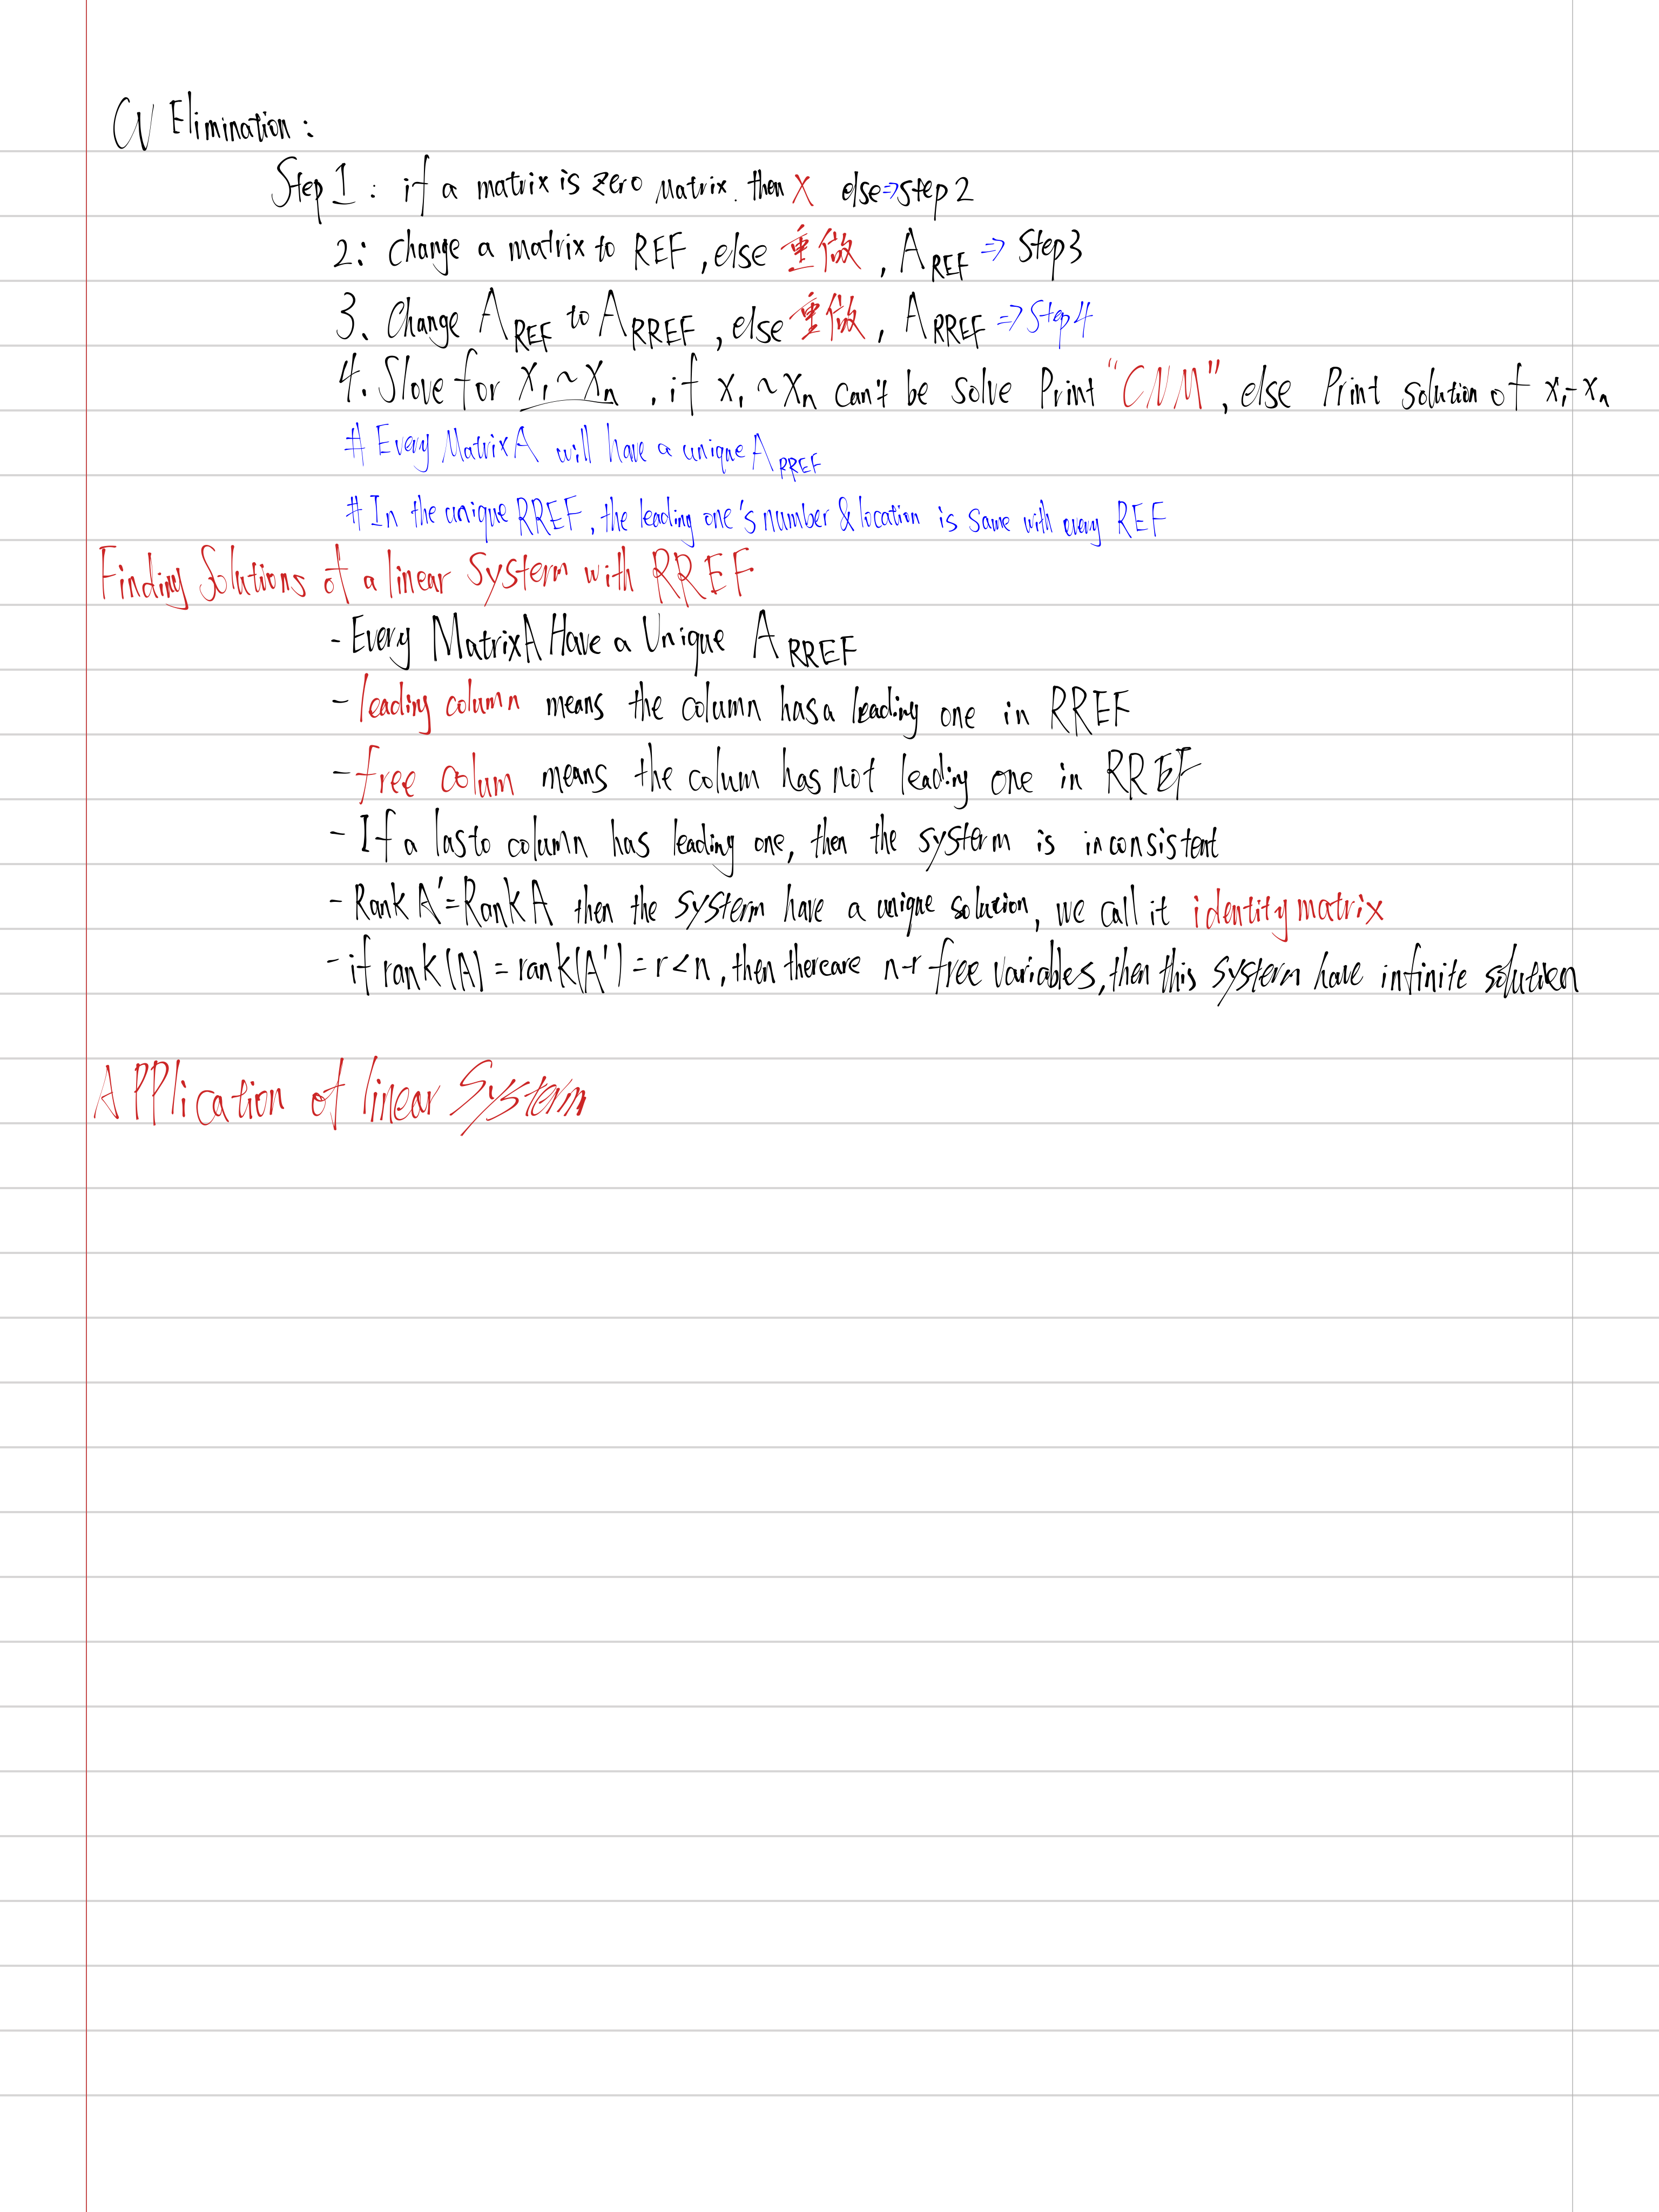 Elimination:
Step 1: if a matrix is zero matrix. then X else⇒step2
2: Change a matrix to REF, else 重做, A_REF ⇒ Step3
3. Change A_REF to A_RREF, else 重做, A_RREF ⇒ Step4
4. Slove for X₁~Xₙ, if X₁~Xₙ can't be solve Print "CNM", else Print solution of x₁-xₙ
# Every Matrix A will have a unique A_RREF
# In the unique RREF, the leading one's number & location is same with every REF
Finding Solutions of a linear Systerm with RREF
- Every Matrix A Have a Unique A_RREF
- leading column means the column has a leading one in RREF
- free colum means the colum has not leading one in RREF
- If a lasto column has leading one, then the systerm is inconsistent
- Rank A'=Rank A then the systerm have a unique solution, we call it identity matrix
- if rank(A) = rank(A') = r < n, then there are n-r free variables, then this systerm have infinite solution
APPlication of linear Systerm